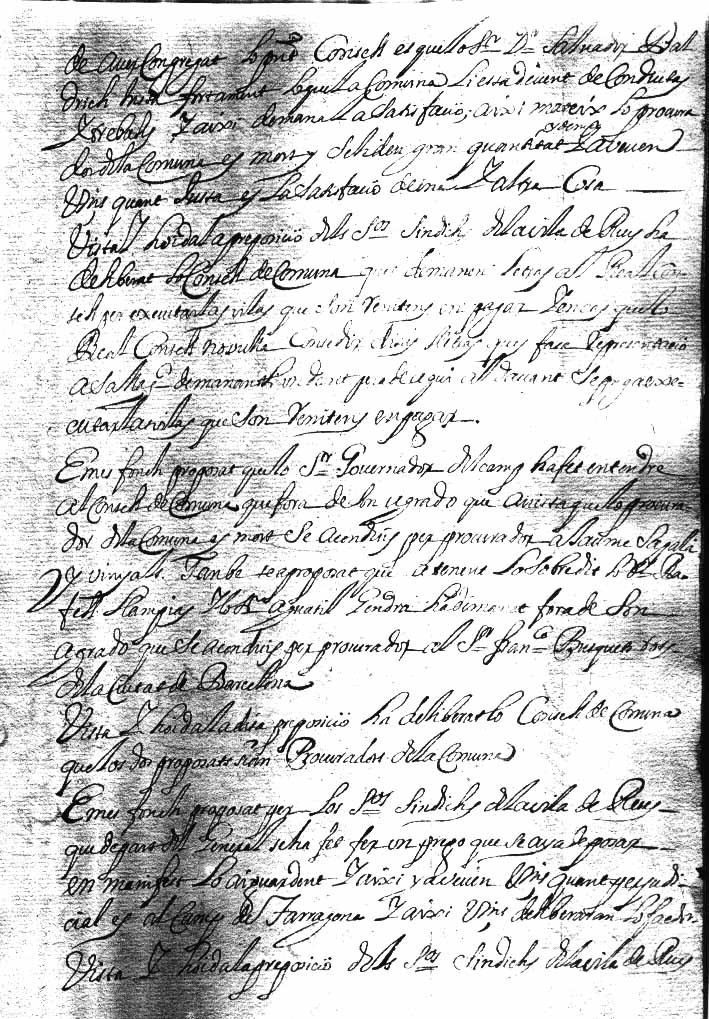 de aver Congregat lo pnt Consell es que lo Sr Dn Salvador Bal
drich insta fortament lo que la Comuna li esta devent de Conduitas
y treballs y aixi demana la satisfacio, aixi mateix lo procura
dor de la Comuna es mort y se li deu gran quantitat y a
Vms quant justa es la satisfacio de una y altra Cosa
Vista y hoida la preposicio dels Srs Sindichs de la vila de Reus ha
deliberat lo Consell de Comuna que demanen letras al Real Con
sell per executar las vilas que son en pagar y en cas que lo
Real Consell no vulla Concedir ditas letras ques fase representacio
a sa Mag. demanant per de aqui al davant se puga exe-
cutar las vilas que son en pagar.
E mes fonch proposat que lo Sr Governador del camp ha fet entendre
al Consell de Comuna que fora de son agrado que avista que lo procura
dor de la Comuna es mort se per procurador a Jaume Sagala
y vinyals. Tambe se a proposat que a tenent lo sobredit lo Dr Ra
fell Llampias agutil ha dimanat fora de son
agrado que se per procurador al Sr Franco Busquets
de la Ciutat de Barcelona
Vista y hoida la dita preposicio ha deliberat lo Consell de Comuna
que los dos proposats sian Procuradors de la Comuna
E mes fonch proposat per los Srs Sindichs de la vila de Reus
que de part del General se ha fet fer un prego que se aya de posar
en manifest lo aiguardent y aixi Vms quant perjudi-
cial es al Camp de Tarragona y aixi Vms deliberaran lo fa
Vista y hoida la preposicio dels Srs Sindichs de la vila de Reus